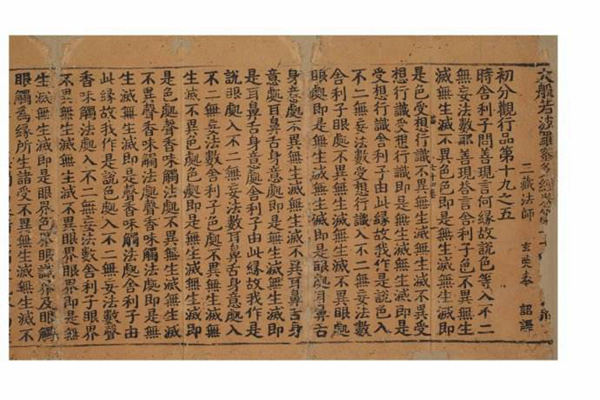 大般若波羅蜜多經卷第七十
三藏法師 玄奘奉 詔譯
初分觀行品第十九之五
時舍利子問善現言何緣故說色等入不二
無妄法數耶善現荅言舍利子色不異無生
滅無生滅不異色色即是無生滅無生滅即
是色受想行識不異無生滅無生滅不異受
想行識受想行識即是無生滅無生滅即是
受想行識舍利子由此緣故我作是說色入
不二無妄法數受想行識入不二無妄法數
舍利子眼處不異無生滅無生滅不異眼處
眼處即是無生滅無生滅即是眼處耳鼻舌
身意處不異無生滅無生滅不異耳鼻舌身
意處耳鼻舌身意處即是無生滅無生滅即
是耳鼻舌身意處舍利子由此緣故我作是
說眼處入不二無妄法數耳鼻舌身意處入
不二無妄法數舍利子色處不異無生滅無
生滅不異色處色處即是無生滅無生滅即
是色處聲香味觸法處不異無生滅無生滅
不異聲香味觸法處聲香味觸法處即是無
生滅無生滅即是聲香味觸法處舍利子由
此緣故我作是說色處入不二無妄法數聲
香味觸法處入不二無妄法數舍利子眼界
不異無生滅無生滅不異眼界眼界即是無
生滅無生滅即是眼界色界眼識界及眼觸
眼觸為緣所生諸受不異無生滅無生滅不